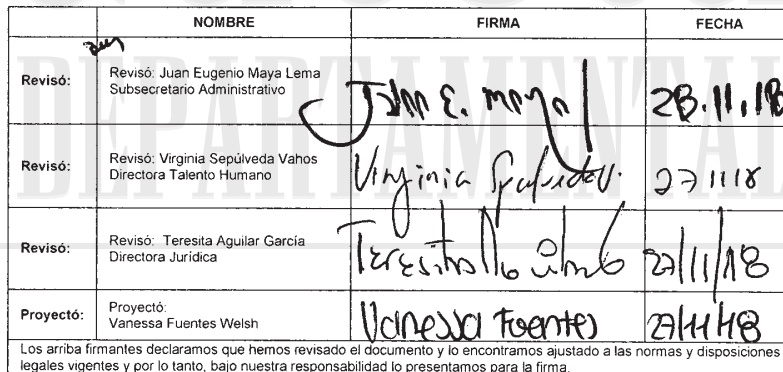 NOMBRE FIRMA FECHA
Revisó: Revisó: Juan Eugenio Maya Lema
Subsecretario Administrativo
Juan E. Maya 28.11.18
Revisó: Revisó: Virginia Sepúlveda Vahos
Directora Talento Humano
Virginia Sepulveda V. 27 11 18
Revisó: Revisó: Teresita Aguilar García
Directora Jurídica
Teresita 27/11/18
Proyectó: Proyectó:
Vanessa Fuentes Welsh
Vanessa Fuentes 27/11/18
Los arriba firmantes declaramos que hemos revisado el documento y lo encontramos ajustado a las normas y disposiciones
legales vigentes y por lo tanto, bajo nuestra responsabilidad lo presentamos para la firma.
DEPARTAMENTAL